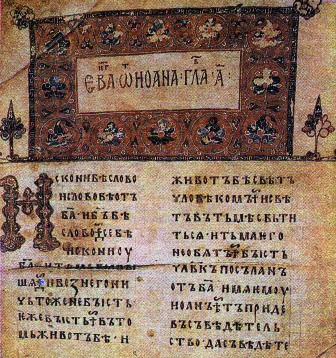 ЕВА Ѡ ИОАНА ГЛА А
ИСКОНИ БѢ СЛОВО
И СЛОВО БѢ ОТЪ
БА · И БЪ БѢ
СЛОВО · СЕ БѢ
ИСКОНИ ОУ
БА · И
И БЕЗ НЕГО НИ
ЧЬТОЖЕ НЕ БЫСТЬ
ЕЖЕ БЫСТЬ · ВЪ ТО
МЬ ЖИВОТЪ БѢ · И
ЖИВОТЪ БѢ СВѢТЪ
ЧЛОВѢКОМЪ · И СВѢ
ТЪ ВЪ ТЬМѢ СВЬТИ
ТЬСѦ · И ТЬМА ЕГО
НЕ ОБѦТЪ · БЫСТЬ
ЧЛВКЪ ПОСЪЛАНЪ
ОТЪ БА · ИМѦ ЕМОУ
ИОАНЪ · ТЪ ПРИДЕ
ВЪ СЪВѢДѢТЕЛЬ
СТВО · ДА СЪВѢДѢТЕ